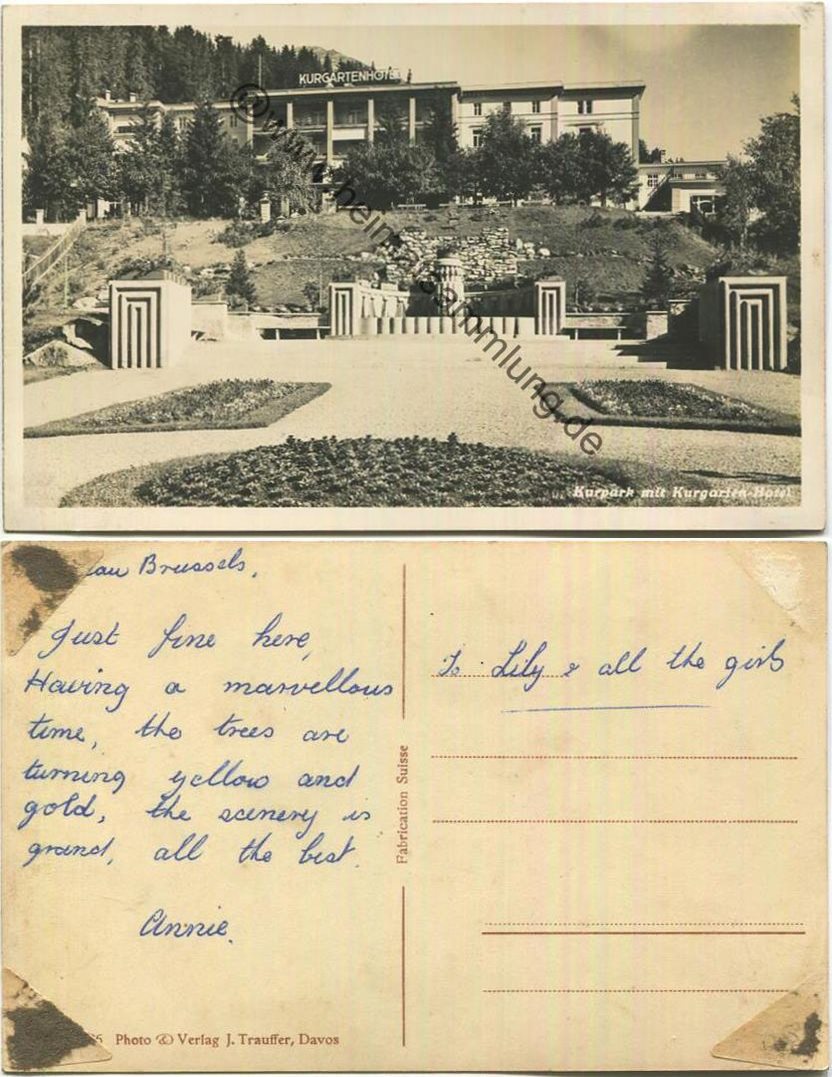 KURGARTENHOTEL
© www.heimatsammlung.de
Kurpark mit Kurgarten-Hotel
Brussels,
Just fine here,
Having a marvellous
time, the trees are
turning yellow and
gold, the scenery is
grand, all the best.
Annie.
To Lily & all the girls
Fabrication Suisse
Photo & Verlag J. Trauffer, Davos